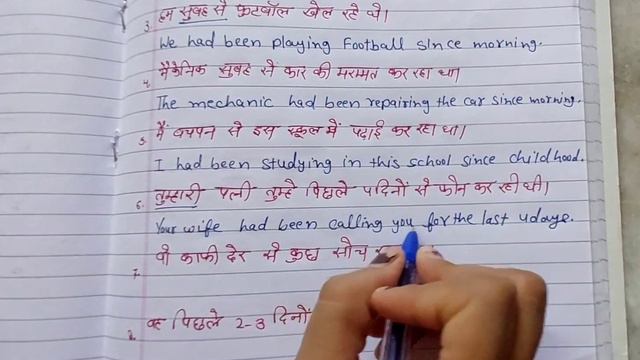 3. हम सुबह से फुटबॉल खेल रहे थे।
We had been playing Football since morning.
4. मैकेनिक सुबह से कार की मरम्मत कर रहा था।
The mechanic had been repairing the car since morning.
5. मैं बचपन से इस स्कूल में पढ़ाई कर रहा था।
I had been studying in this school since childhood.
6. तुम्हारी पत्नी तुम्हे पिछले दिनों से फोन कर रही थी।
Your wife had been calling you for the last 4days.
7. वो काफी देर से कुछ सोच
8. वह पिछले 2-3 दिनों